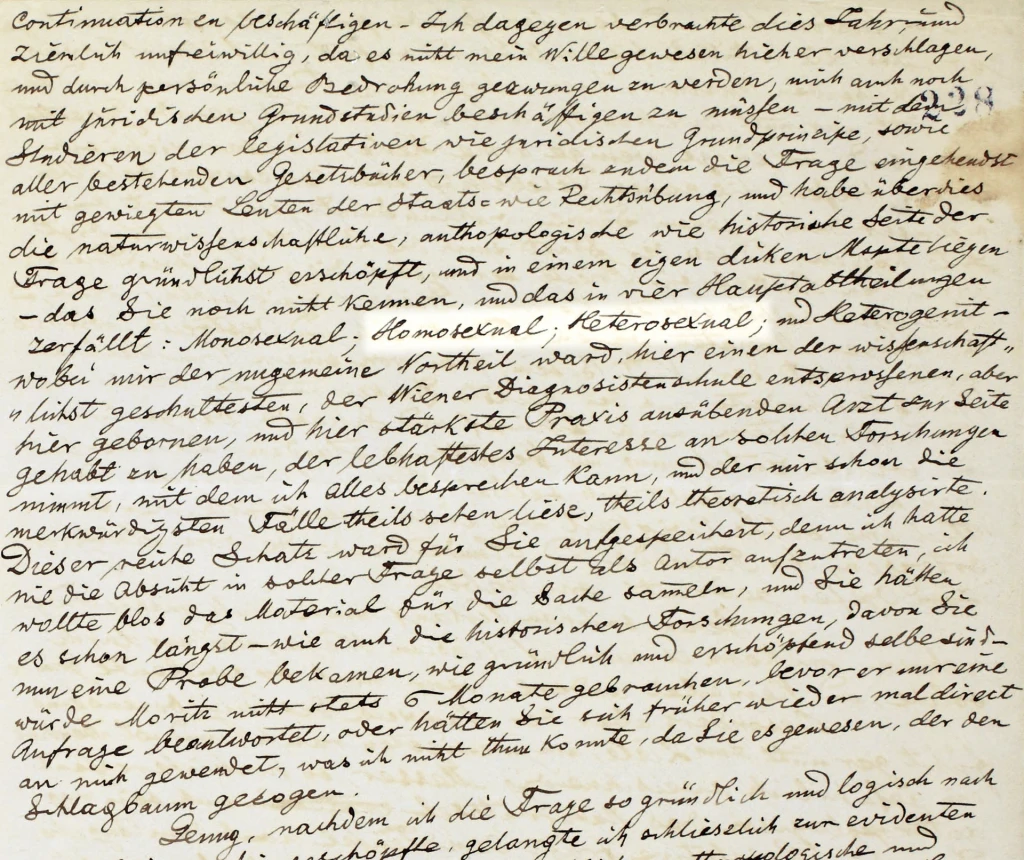 Continuation en beschäftigen – Ich dagegen verbrachte dies Jahr, und
ziemlich unfreiwillig, da es nicht mein Wille gewesen hieher verschlagen,
und durch persönliche Bedrohung gezwungen zu werden, mich auch noch
mit juridischen Grundstudien beschäftigen zu müssen – mit dem
228
Studieren der legislativen wie juridischen Grundprincipe, sowie
aller bestehenden Gesetzbücher, besprach zudem die Frage eingehendst
mit gewiegten Leuten der Staats= wie Rechtsübung, und habe überdies
die naturwissenschaftliche, anthopologische wie historische Seite der
Frage gründlichst erschöpft, und in einem eigen dicken Mapte liegen
– das Sie noch nicht kennen, und das in vier Hauptabtheilungen
zerfällt: Monosexual; Homosexual; Heterosexual; und Heterogenit –
wobei mir der ungemeine Vortheil ward, hier einen der wissenschaft„
„lichst geschultesten, der Wiener Diagnosistenschule entsprossenen, aber
hier gebornen, und hier stärkste Praxis ausübenden Arzt zur Seite
gehabt zu haben, der lebhaftestes Interesse an solchen Forschungen
nimmt, mit dem ich Alles besprechen kann, und der mir schon die
merkwürdigsten Fälle theils sehen liese, theils theoretisch analysirte.
Dieser reiche Schatz ward für Sie aufgespeichert, denn ich hatte
nie die Absicht in solcher Frage selbst als Autor aufzutreten, ich
wollte blos das Material für die Sache sam̅eln, und Sie hätten
es schon längst – wie auch die historischen Forschungen, davon Sie
nun eine Probe bekamen, wie gründlich und erschöpfend selbe sind –
würde Moritz nicht stets 6 Monate gebrauchen, bevor er nur eine
Anfrage beantwortet, oder hätten Sie sich früher wieder mal direct
an mich gewendet, was ich nicht thun konnte, da Sie es gewesen, der den
Schlagbaum gezogen.
Genug, nachdem ich die Frage so gründlich und logisch nach
erschöpfte, gelangte ich schlieszlich zur evidenten
und